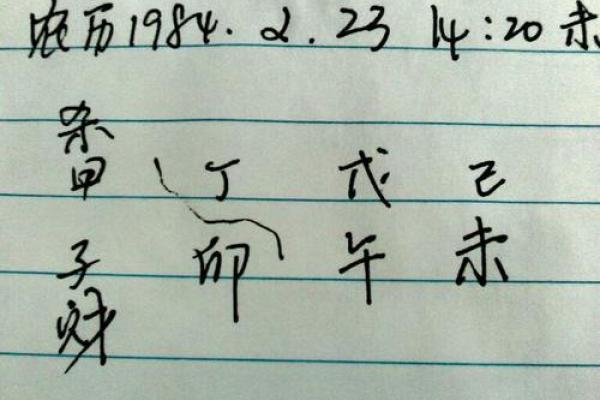 农历1984. 2. 23 14:20 未
杀
甲 丁 戊 己
子 卯 午 未
财